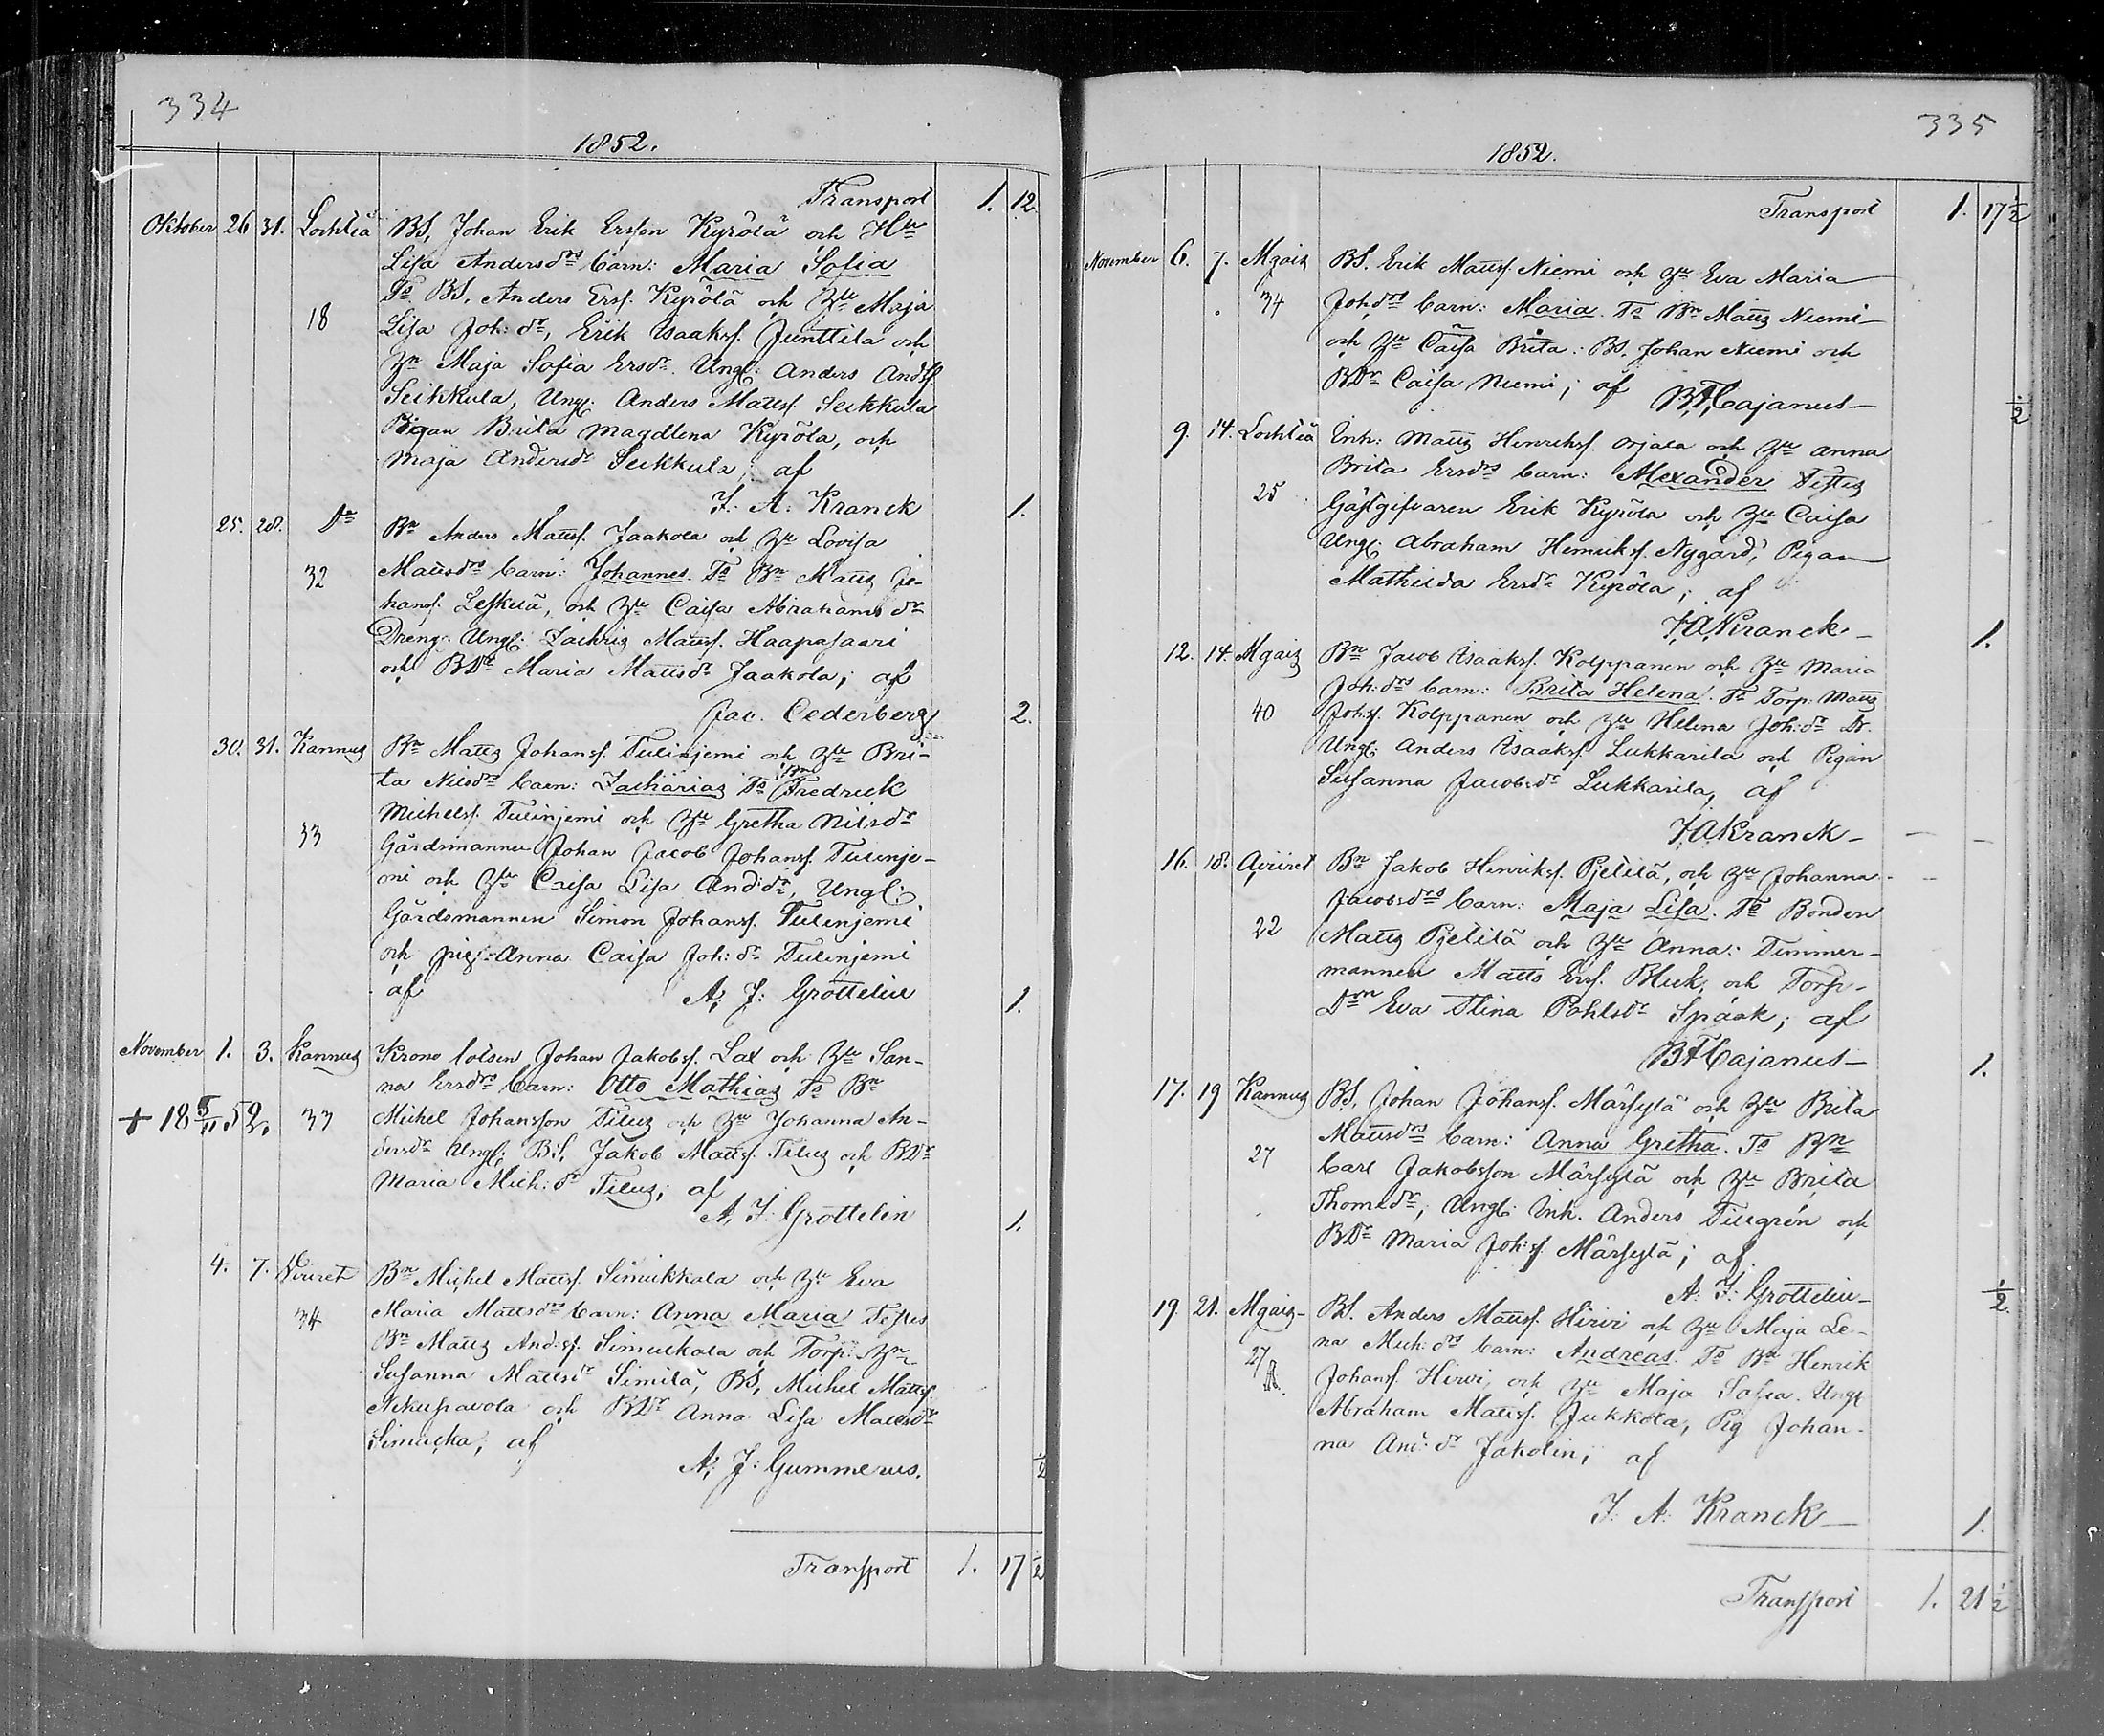 334
1852.
Transport 1. 12.
Oktober 26 31. Lochteå BS, Johan Erik Ersson Kyrölä och Hu
Lisa Andersdrs barn: Maria Sofia
Ts BS, Anders Ersf. Kyrölä och Hu Maja
18 Lisa Joh: dr, Erik Isaaksf. Junttila och
Hu Maja Sofia Ersdr. Ungl: Anders Andsf.
Seikkula, Ungl: Anders Mattsf. Seikkula
Pigan Brita Magdlena Kyröla, och
Maja Andersdr Seikkula; af
F: A: Kranck 1.
25. 28. Do Bn Anders Mattsf. Jaakola och Hu Lovisa
32 Mattsdrs barn: Johannes. Ts Bn Matts Jo-
hansf. Leskelä, och Hu Caisa Abrahamsdr
Dreng: Ungl: Zachris Mattsf. Haapasaari
och BDr Maria Mattsdr Jaakola; af
Jac. Cederberg 2.
30. 31. Kannus Bn Matts Johansf. Tulinjemi och Hu Bri-
ta Nilsdrs barn: Zacharias Ts Bn Fredrick
Michelsf. Tulinjemi och Hu Gretha Nilsdr
33 Gårdsmannen Johan Jacob Johansf. Tulinje-
mi och Hu Caisa Lisa And:dr, Ungl:
Gårdsmannen Simon Johansf. Tulinjemi
och pig: Anna Caisa Joh: dr Tulinjemi
af A: F: Grottelin 1.
November 1. 3. Kannus Krono Johan Jakobsf. Lax och Hu San-
na Ersdrs barn: Otto Mathias Ts Bn
+ 18 5/11 52. 33 Michel Johansson Tilus och Hu Johanna An-
dersdr Ungl: BS, Jakob Mattsf. Tilus och BDr
Maria Mich: dr Tilus; af
A, F: Grottelin 1.
4. 7. Viiret Bn Michel Mattsf. Simukkala och Hu Eva
34 Maria Mattsdrs barn: Anna Maria Testes
Bn Matts And:sf. Simukala och Torp: Hu
Susanna Mattsdr Similä, BS, Michel Mattsf.
och BDr Anna Lisa Mattsdr
Simucka; af
A: J: Gummerus. 1/2
Transport 1. 17 1/2
335
1852.
Transport 1. 17 1/2
November 6. 7. Mgais BS. Erik Mattsf. Niemi och Hu Eva Maria
34 Joh:drs barn: Maria. Ts Bn Matts Niemi
och Hu Caisa Brita: BS. Johan Niemi och
BDr Caisa Niemi; af BF Cajanus 1/2
9. 14. Lochteå Inh: Matts Henriksf. Orjala och Hu Anna
Brita Ersdrs barn: Alexander Testes
25 Gästgifvaren Erik Kyröla och Hu Caisa
Ungl: Abraham Henriksf. Nygård, Pigan
Mathilda Ersdr Kyröla; af
F.A. Kranck 1.
12. 14. Mgais Bn Jacob Isaaksf. Kolppanen och Hu Maria
Joh:drs barn: Brita Helena. Ts Torp. Matts
40 Johsf. Kolppanen och Hu Helena Joh:dr Do.
Ungl: Anders Isaaksf. Lukkarila och Pigan
Susanna Jacobsdr Lukkarila, af
F A Kranck
16. 18. Aviiret Bn Jakob Henriksf. Pjetilä, och Hu Johanna
Jacobsdrs barn: Maja Lisa. Ts Bonden
22 Matts Pjetilä och Hu Anna: Timmer-
mannen Matts Ersf. Bluck, och Torp.
Drn Eva Stina Pahlsdr Spaak; af
BF Cajanus 1.
17. 19 Kannus BS, Johan Johansf. Märsylä och Hu Brita
Mattsdrs barn: Anna Gretha. Ts Bn
27 Carl Jakobsson Märsylä och Hu Brita
Thomsdr, Ungl: Inh. Anders Tillgrén och
BDr Maria Joh:sf. Märsylä; af.
A: F: Grottelin 1/2
19. 21. Mgais BS. Anders Mattsf. Hirvi och Hu Maja Le-
na Mich: drs barn: Andreas. Ts Bn Henrik
27 Johansf. Hirvi, och Hu Maja Safia. Ungl
Abraham Mattsf. Jukkola, Pig Johan-
na And: dr Jakolin; af
F. A: Kranck 1.
Transport 1. 21 1/2